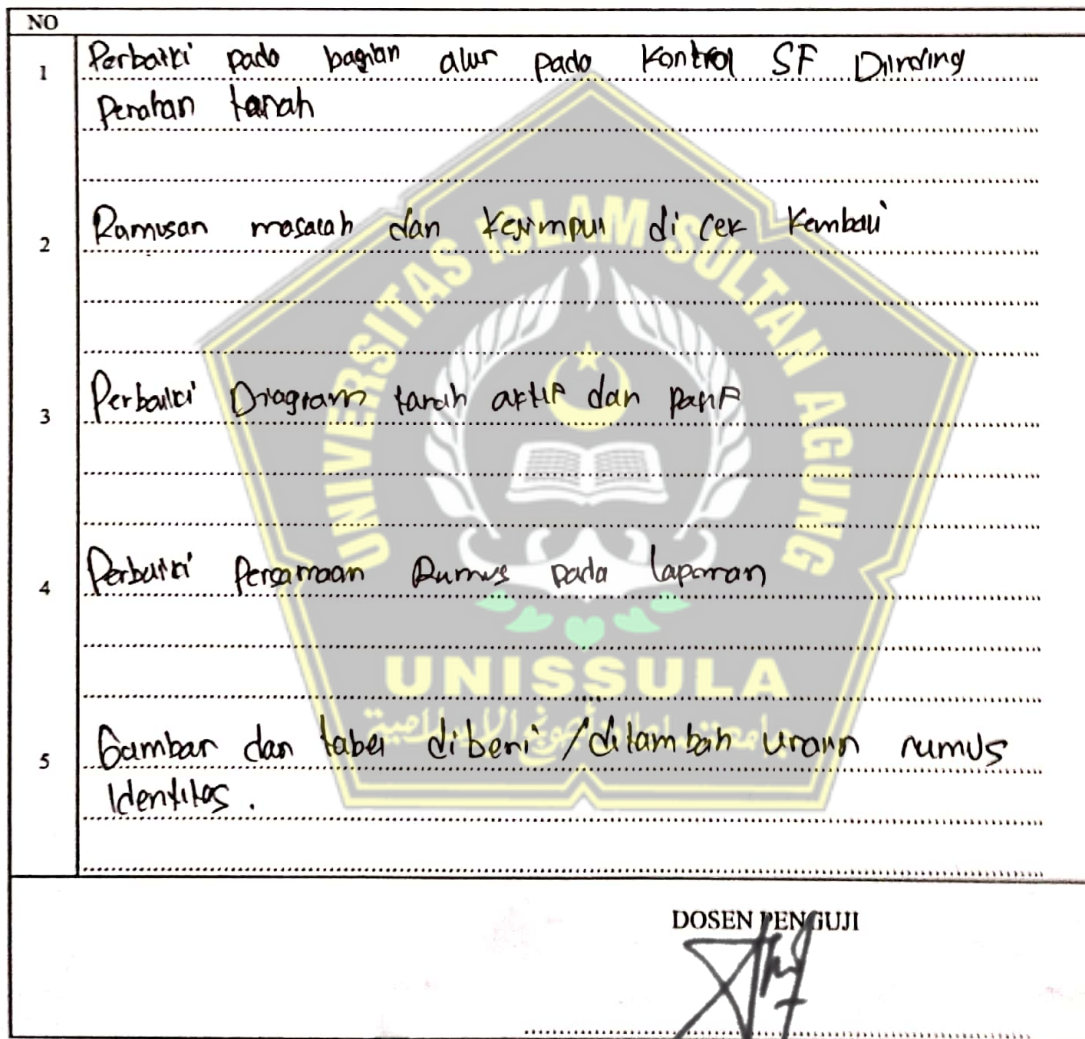 NO
1 Perbaiki pada bagian alur pada Kontrol SF Dinding
Penahan tanah
2 Rumusan masalah dan Kesimpul di cek Kembali
3 Perbaiki Diagram tanah aktif dan pasif
4 Perbaiki Persamaan Rumus pada laporan
5 Gambar dan tabel diberi / ditambah uraian rumus
Identitas.
UNIVERSITAS ISLAM SULTAN AGUNG
UNISSULA
جامعتسلطان أجونج الإسلامية
DOSEN PENGUJI